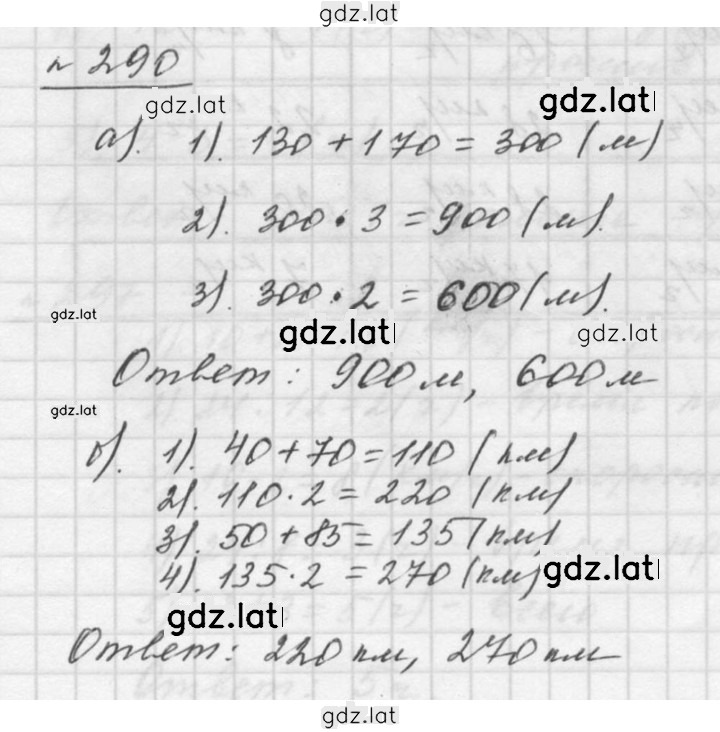 gdz.lat
№ 290
gdz.lat
gdz.lat
а). 1). 130 + 170 = 300 (м)
2). 300 · 3 = 900 (м).
3). 300 · 2 = 600 (м).
gdz.lat
gdz.lat
gdz.lat
Ответ: 900 м, 600 м
gdz.lat
б). 1). 40 + 70 = 110 (км)
2). 110 · 2 = 220 (км)
3). 50 + 85 = 135 (км)
4). 135 · 2 = 270 (км)
gdz.lat
gdz.lat
Ответ: 220 км, 270 км
gdz.lat